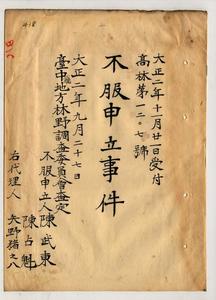 大正二年十一月廿一日受付
高林第一二〇七號
不服申立事件
大正二年九月二十七日
臺中地方林野調查委員會查定
不服申立人 陳武東
陳占魁
右代理人
矢野猪之八